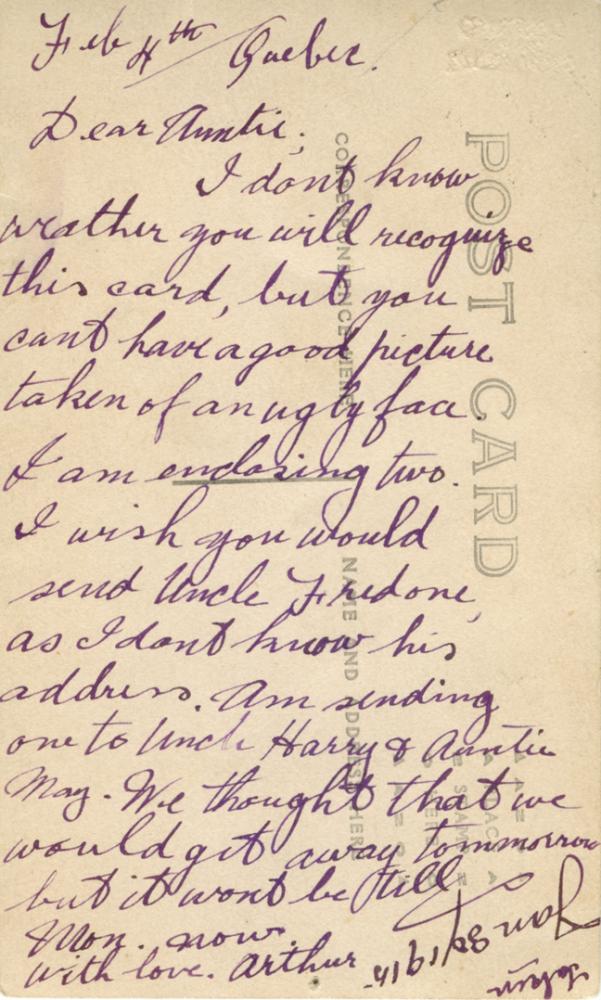 Feb 4th Quebec.
Dear Auntie,
I dont know
weather you will recognize
this card, but you
cant have a good picture
taken of an ugly face.
I am enclosing two.
I wish you would
send Uncle Fred one,
as I dont know his
address. Am sending
one to Uncle Harry & Auntie
May. We thought that we
would get away tommorrow
but it wont be till
Mon. now.
with love. Arthur
POST CARD
CORRESPONDENCE HERE
NAME AND ADDRESS HERE
PLACE
STAMP
HERE